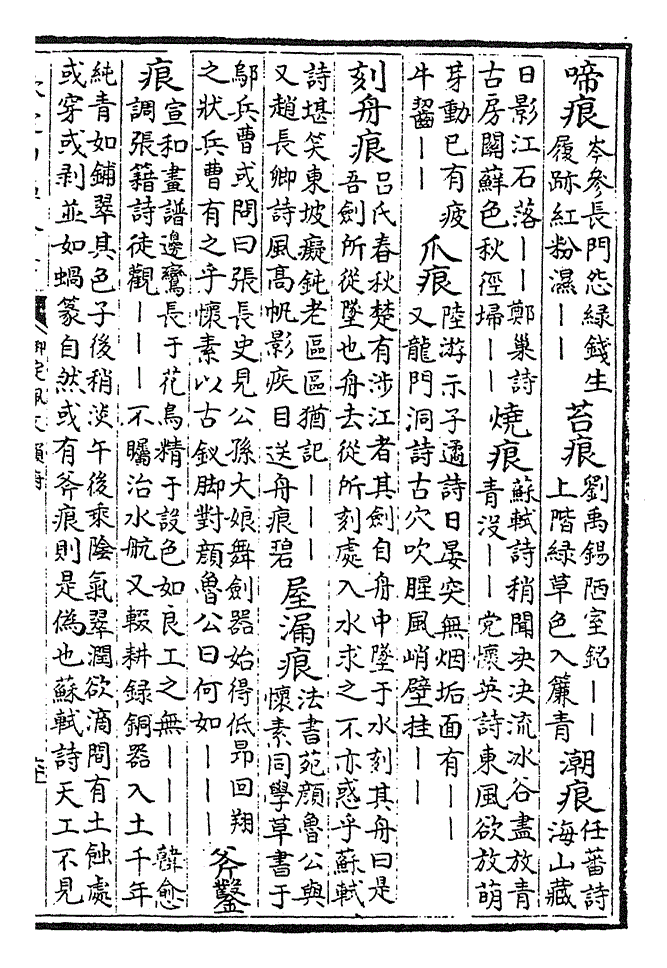 啼痕岑參長門怨綠錢生
履跡紅粉濕——
苔痕劉禹錫陋室銘——
上階綠草色入簾青
潮痕任蕃詩
海山藏
日影江石落——鄭巢詩
古房關蘚色秋徑埽——
燒痕蘇軾詩稍聞决决流冰谷盡放青
青沒——党懷英詩東風欲放萌
芽動已有疲
牛齧——
爪痕陸游示子遹詩日晏突無烟垢面有——
又龍門洞詩古穴吹腥風峭壁挂——
刻舟痕呂氏春秋楚有涉江者其劍自舟中墜于水刻其舟曰是
吾劍所從墜也舟去從所刻處入水求之不亦惑乎蘇軾
詩堪笑東坡癡鈍老區區猶記———
又趙長卿詩風高帆影疾目送舟痕碧
屋漏痕法書苑顔魯公與
懷素同學草書于
鄔兵曹或問曰張長史見公孫大娘舞劍器始得低昂回翔
之狀兵曹有之乎懷素以古釵脚對顔魯公曰何如———
斧鑿
痕宣和畫譜邊鸞長于花鳥精于設色如良工之無———韓愈
調張籍詩徒觀———不矚治水航又輟耕録銅器入土千年
純青如鋪翠其色子後稍淡午後乘陰氣翠潤欲滴間有土蝕處
或穿或剥並如蝸篆自然或有斧痕則是偽也蘇軾詩天工不見